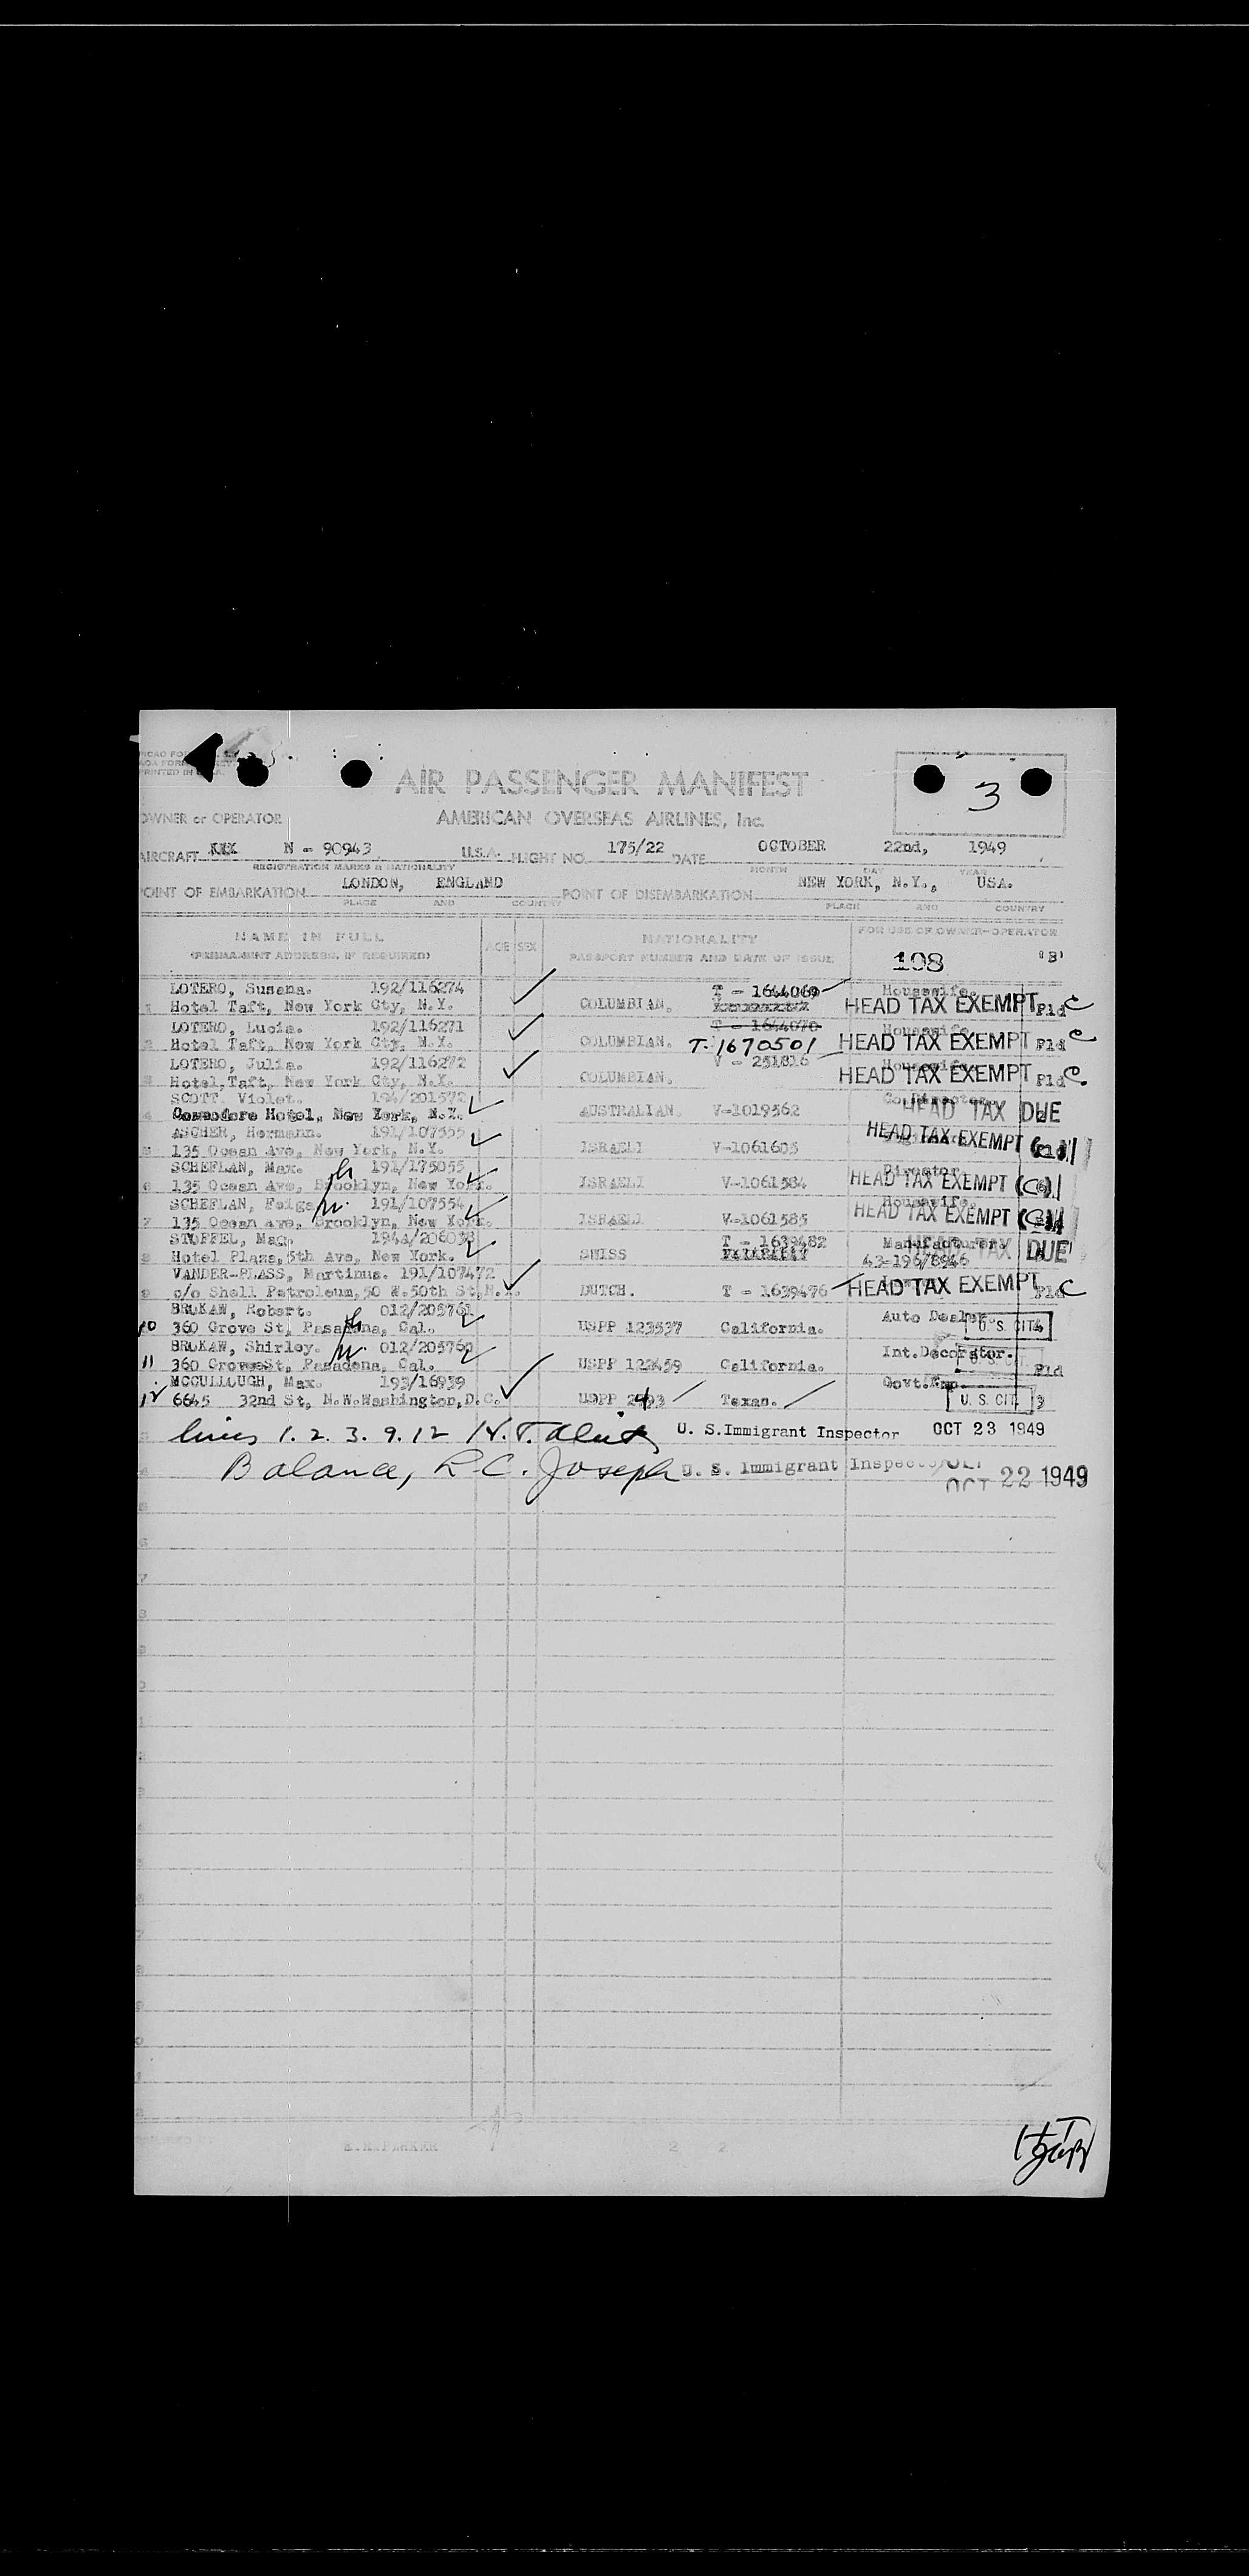 AIR PASSENGER MANIFEST
3
OWNER or OPERATOR AMERICAN OVERSEAS AIRLINES, Inc.
AIRCRAFT XXX N - 90943 U.S.A. FLIGHT NO. 175/22 DATE OCTOBER 22nd, 1949
REGISTRATION MARKS & NATIONALITY MONTH DAY YEAR
POINT OF EMBARKATION LONDON, ENGLAND POINT OF DISEMBARKATION NEW YORK, N.Y., USA.
PLACE AND COUNTRY PLACE AND COUNTRY
NAME IN FULL AGE SEX NATIONALITY FOR USE OF OWNER-OPERATOR
(PERMANENT ADDRESS, IF REQUIRED) PASSPORT NUMBER AND DATE OF ISSUE 108 'B'
LOTERO, Susana. 192/116274 T - 1644069 Housewife.
1 Hotel Taft, New York Cty, N.Y. COLUMBIAN. HEAD TAX EXEMPT Pld C
LOTERO, Lucia. 192/116271 T - 1644070 Housewife
2 Hotel Taft, New York Cty, N.Y. COLUMBIAN. T. 1670501 HEAD TAX EXEMPT Pld C
LOTERO, Julia. 192/116272 V - 251816 Housewife.
Hotel, Taft, New York Cty, N.Y. COLUMBIAN. HEAD TAX EXEMPT Pld C.
SCOTT. Violet. 194/201572
4 Commodore Hotel, New York, N.Y. AUSTRALIAN. V-1019562 HEAD TAX DUE
ASCHER, Hermann. 191/107555
135 Ocean Ave, New York, N.Y. ISRAELI V-1061605 HEAD TAX EXEMPT
SCHEFLAN, Max. 191/175055 Director.
6 135 Ocean Ave, Brooklyn, New York. ISRAELI V-1061584 HEAD TAX EXEMPT (C)
SCHEFLAN, Feiga 191/107554 Housewife.
7 135 Ocean Ave, Brooklyn, New York. ISRAELI V-1061585 HEAD TAX EXEMPT
STOFFEL, Max. T - 1639482 Manufacturer HEAD TAX DUE
Hotel Plaza, 5th Ave, New York. SWISS 43-196/8946
VANDER-PLASS, Martinus. 191/107472
9 c/o Shell Petroleum, 50 W. 50th St, N.Y. DUTCH. T - 1639476 HEAD TAX EXEMPT Pld C
BROKAW, Robert. 012/205761 Auto Dealer.
10 360 Grove St, Pasadena, Cal. USPP 123537 California. U. S. CIT.
BROKAW, Shirley. 012/205760 Int. Decorator.
11 360 Grove St, Pasadena, Cal. USPP 122459 California. U. S. CIT. Pld
MCCULLOUGH, Max. 193/16939 Govt. Emp.
12 6645 32nd St, N.W. Washington, D.C. USPP Texas. U. S. CIT. 3
lines 1. 2. 3. 9. 12 U. S. Immigrant Inspector OCT 23 1949
Balance, R. C. Joseph U. S. Immigrant Inspector OCT 22 1949
PARKER 2 2